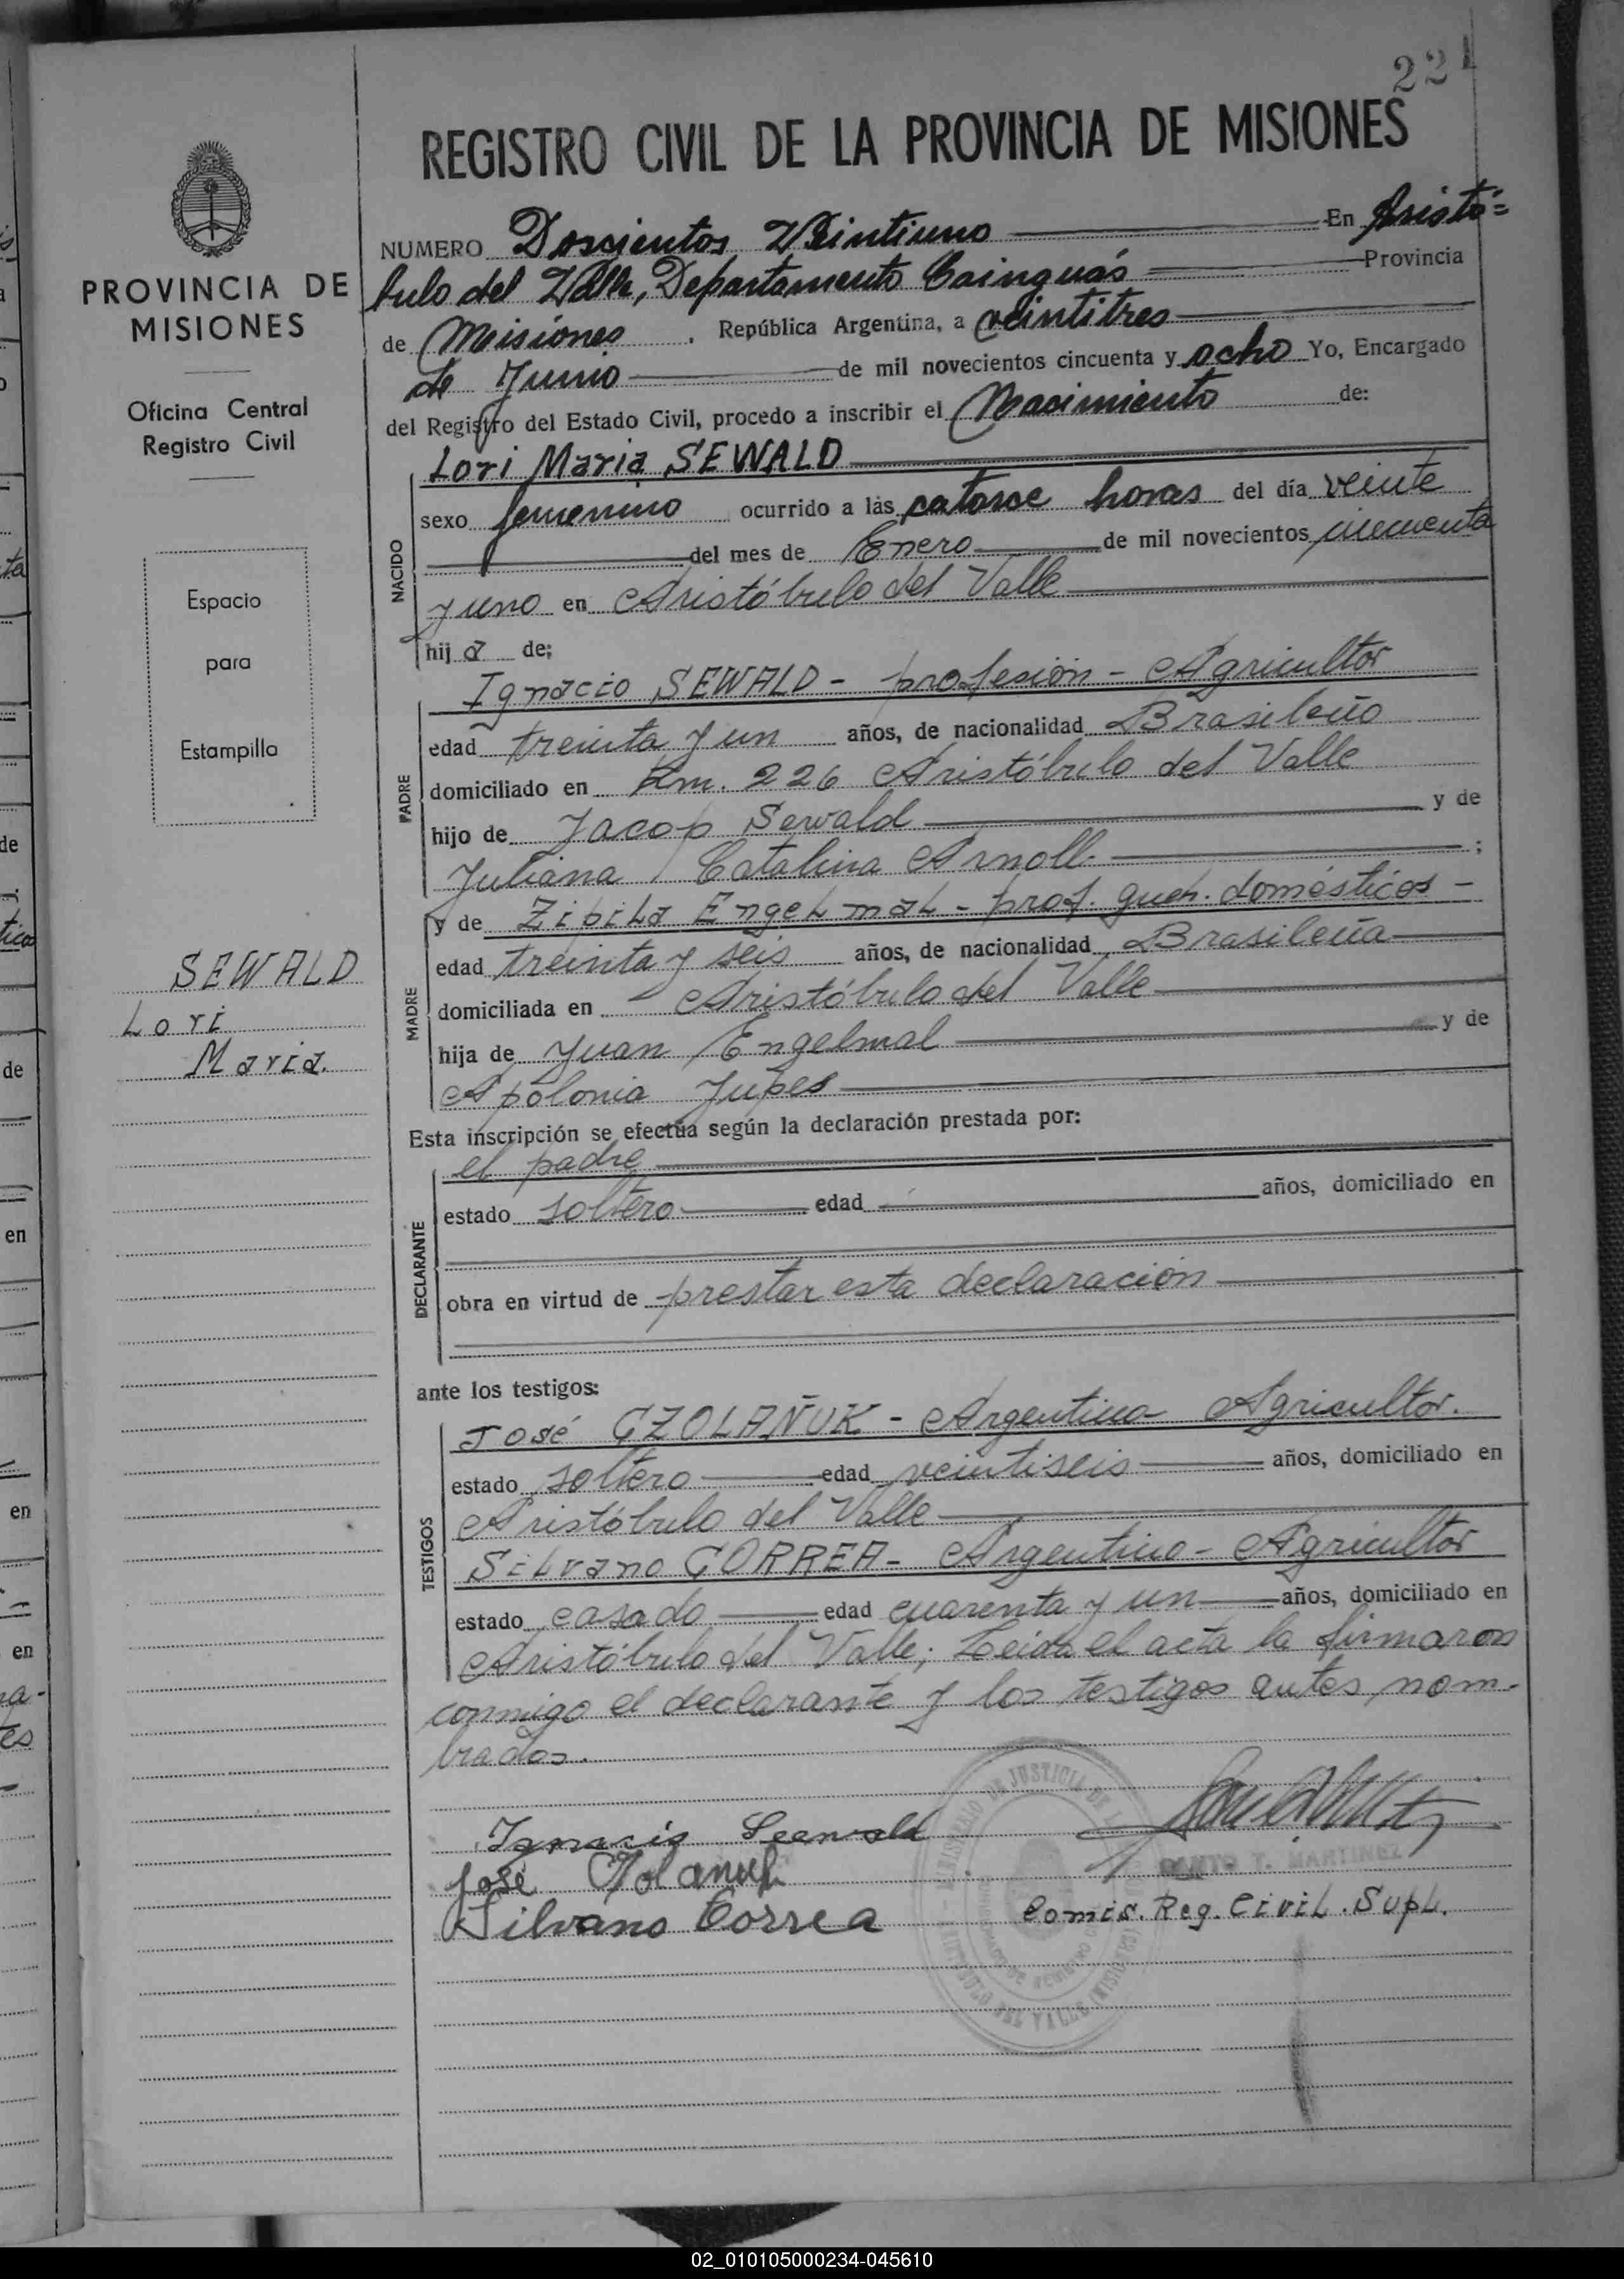 221
REGISTRO CIVIL DE LA PROVINCIA DE MISIONES
NUMERO Doscientos Veintiuno En Aristó=
bulo del Valle, Departamento Cainguás Provincia
de Misiones. República Argentina, a veintitres
de Junio de mil novecientos cincuenta y ocho Yo, Encargado
del Registro del Estado Civil, procedo a inscribir el Nacimiento de:
Lori Maria SEWALD
sexo femenino ocurrido a las catorce horas del día veinte
del mes de Enero de mil novecientos cincuenta
y uno en Aristóbulo del Valle
hij a de;
NACIDO
Ignacio SEWALD - profesión - Agricultor
edad treinta y un años, de nacionalidad Brasileño
domiciliado en Km. 226 Aristóbulo del Valle
hijo de Jacop Sewald y de
Juliana Catalina Arnoll ;
PADRE
y de Zibila Engelmal - prof. queh. domésticos -
edad treinta y seis años, de nacionalidad Brasileña
domiciliada en Aristóbulo del Valle
hija de Juan Engelmal y de
Apolonia Jupes
MADRE
Esta inscripción se efectúa según la declaración prestada por:
el padre
estado soltero edad años, domiciliado en
obra en virtud de prestar esta declaración
DECLARANTE
ante los testigos:
José CZOLAÑUK - Argentino Agricultor.
estado soltero edad veintiseis años, domiciliado en
Aristóbulo del Valle
Silvano CORREA - Argentino - Agricultor
estado casado edad cuarenta y un años, domiciliado en
Aristóbulo del Valle; Leida el acta la firmaron
TESTIGOS
conmigo el declarante y los testigos antes nom-
brados.
Ignacio Seewald
José
Silvano Correa
T. MARTINEZ
Comis. Reg. Civil. Supl.
PROVINCIA DE
MISIONES
Oficina Central
Registro Civil
Espacio
para
Estampilla
SEWALD
Lori
Maria.
02_010105000234-045610